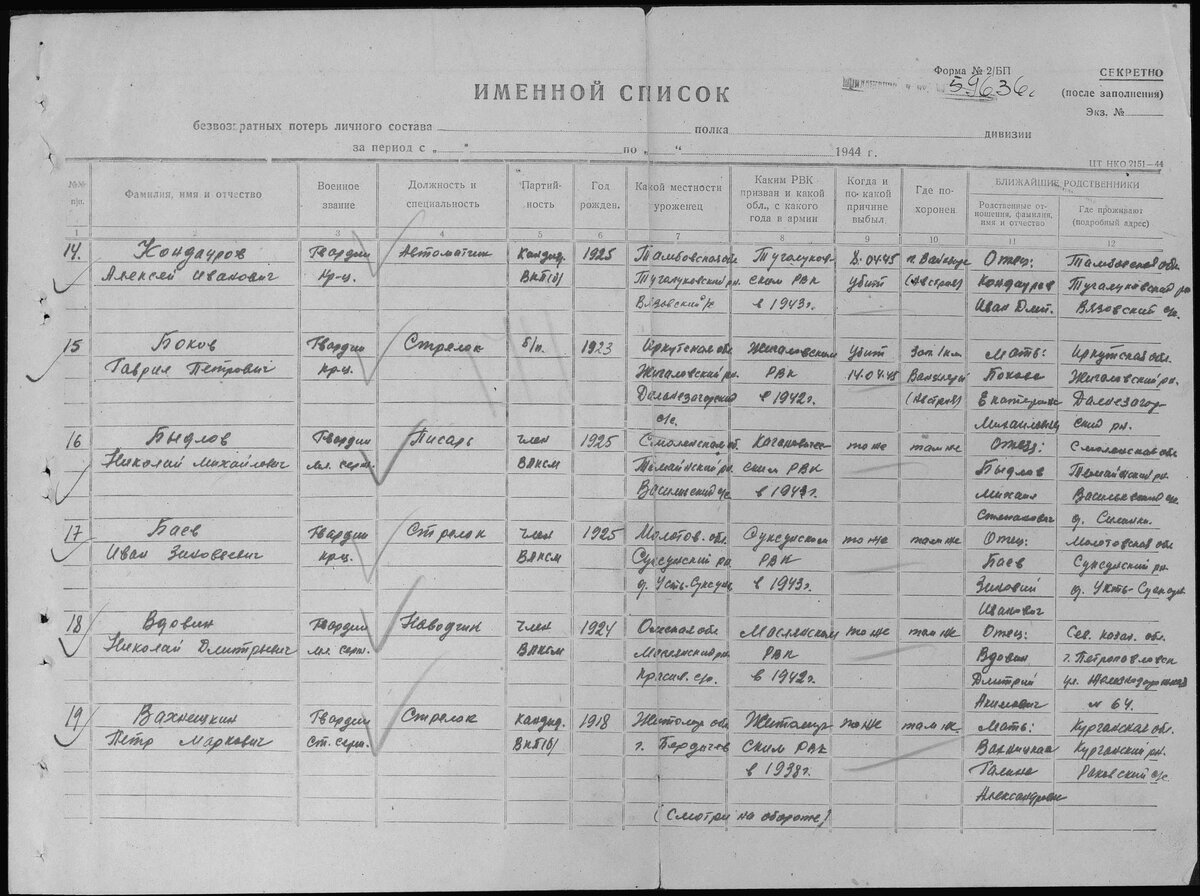 Форма № 2/БП
СЕКРЕТНО
59636с
(после заполнения)
Экз. №
ИМЕННОЙ СПИСОК
безвозвратных потерь личного состава полка дивизии
за период с „ " по „ " 1944 г.
ЦТ НКО 2151—44
№№ п/п. Фамилия, имя и отчество Военное звание Должность и специальность Партийность Год рожден. Какой местности уроженец Каким РВК призван и какой обл., с какого года в армии Когда и по какой причине выбыл Где похоронен БЛИЖАЙШИЕ РОДСТВЕННИКИ
Родственные отношения, фамилия, имя и отчество Где проживают (подробный адрес)
1 2 3 4 5 6 7 8 9 10 11 12
14. Кондауров Гвардии Автоматчик Кандид. 1925 Тамбовская обл Тугалуков- 8.04.45 Отец: Тамбовская обл
Алексей Иванович кр-ц. ВКП(б) Тугалуковский рн. ским РВК убит (Австрия) Кондауров Тугалуковский рн
Вязовский с/с в 1943г. Иван Дмит. Вязовский с/с.
15 Боков Гвардии Стрелок б/п. 1923 Иркутская обл Жигаловским убит Зап. 1 км Мать: Иркутская обл.
Гаврил Петрович кр-ц. Жигаловский рн. РВК 14.04.45 Бокова Жигаловский рн.
в 1942г. (Австрия) Екатерина
с/с. Михайловна ский рн.
16 Быдлов Гвардии Писарь член 1925 Смоленская об. Каганович- то же там же Отец: Смоленская обл
Николай Михайлович мл. серж. ВЛКСМ ским РВК Быдлов
в 1943г. Михаил
Степанович
17 Баев Гвардии Стрелок член 1925 Молотов. обл Суксунском то же там же Отец: Молотовская обл
Иван Зиновеевич кр-ц. ВЛКСМ Суксунский рн РВК Баев Суксунский рн.
д. Усть-Суксун в 1943г. Зиновий д. Усть-Суксун
Иванович
18 Вдовин Гвардии Наводчик член 1924 Омская обл Маслянским то же там же Отец: Сев. казах. обл.
Николай Дмитрьевич мл. серж. ВЛКСМ Маслянский рн. РВК Вдовин г. Петропавловск
Красив. с/с. в 1942г. Дмитрий ул. Железнодорожная
Акимович № 64.
19 Вахницкин Гвардии Стрелок кандид. 1918 Житомир обл Житомир то же там же. Мать: Курганская обл.
Петр Маркович Ст. серж. ВКП(б) г. Бердичев ским РВК Курганский рн.
в 1938г. Галина Раковский с/с
Александровн
(Смотри на обороте)